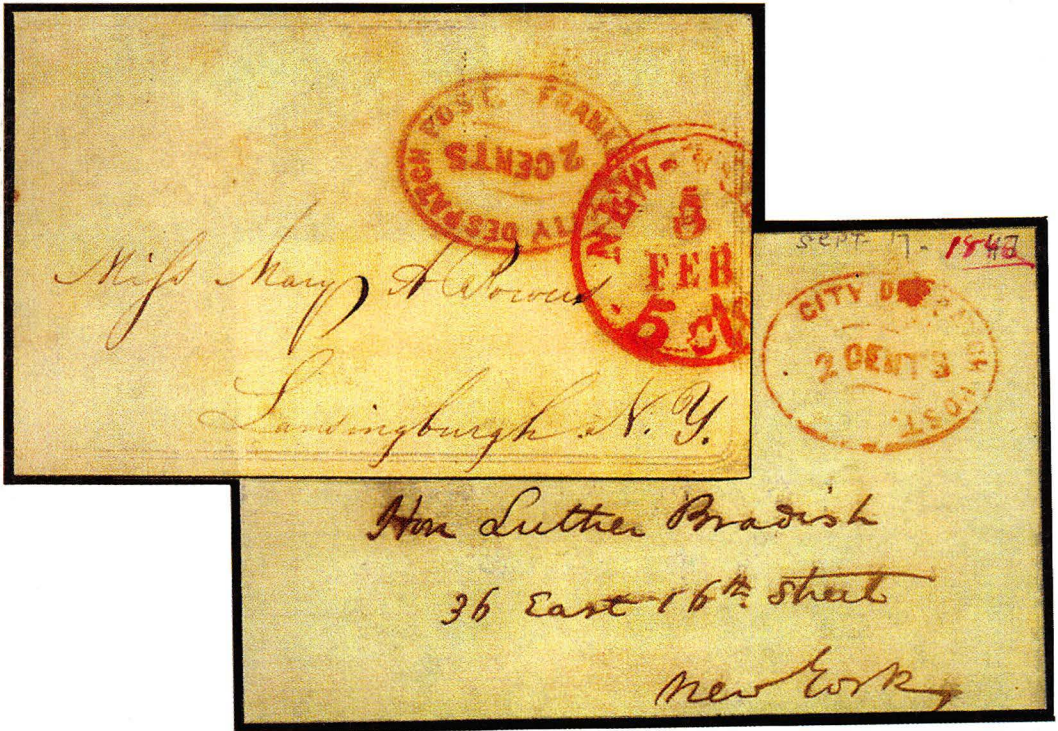 CITY DESPATCH POST. - FRANK
2 CENTS
NEW-
8
FEB
5 cts
Miss Mary A Powers
Lansingburgh. N. Y.
SEPT 17 -
CITY DESPATCH POST.
2 CENTS
Hon Luther Bradish
36 East 16th Street
New York